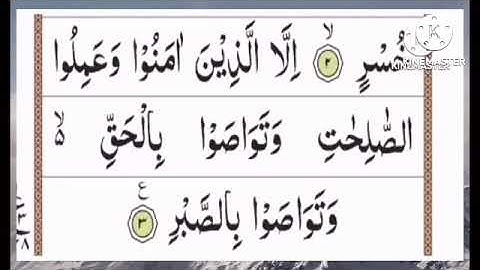 خُسْرٍ ۙ﴿۲﴾ اِلَّا الَّذِيْنَ اٰمَنُوْا وَعَمِلُوا
الصّٰلِحٰتِ وَتَوَاصَوْا بِالْحَقِّ ۙ۬
وَتَوَاصَوْا بِالصَّبْرِ ﴿۳﴾ ع
KINEMASTER